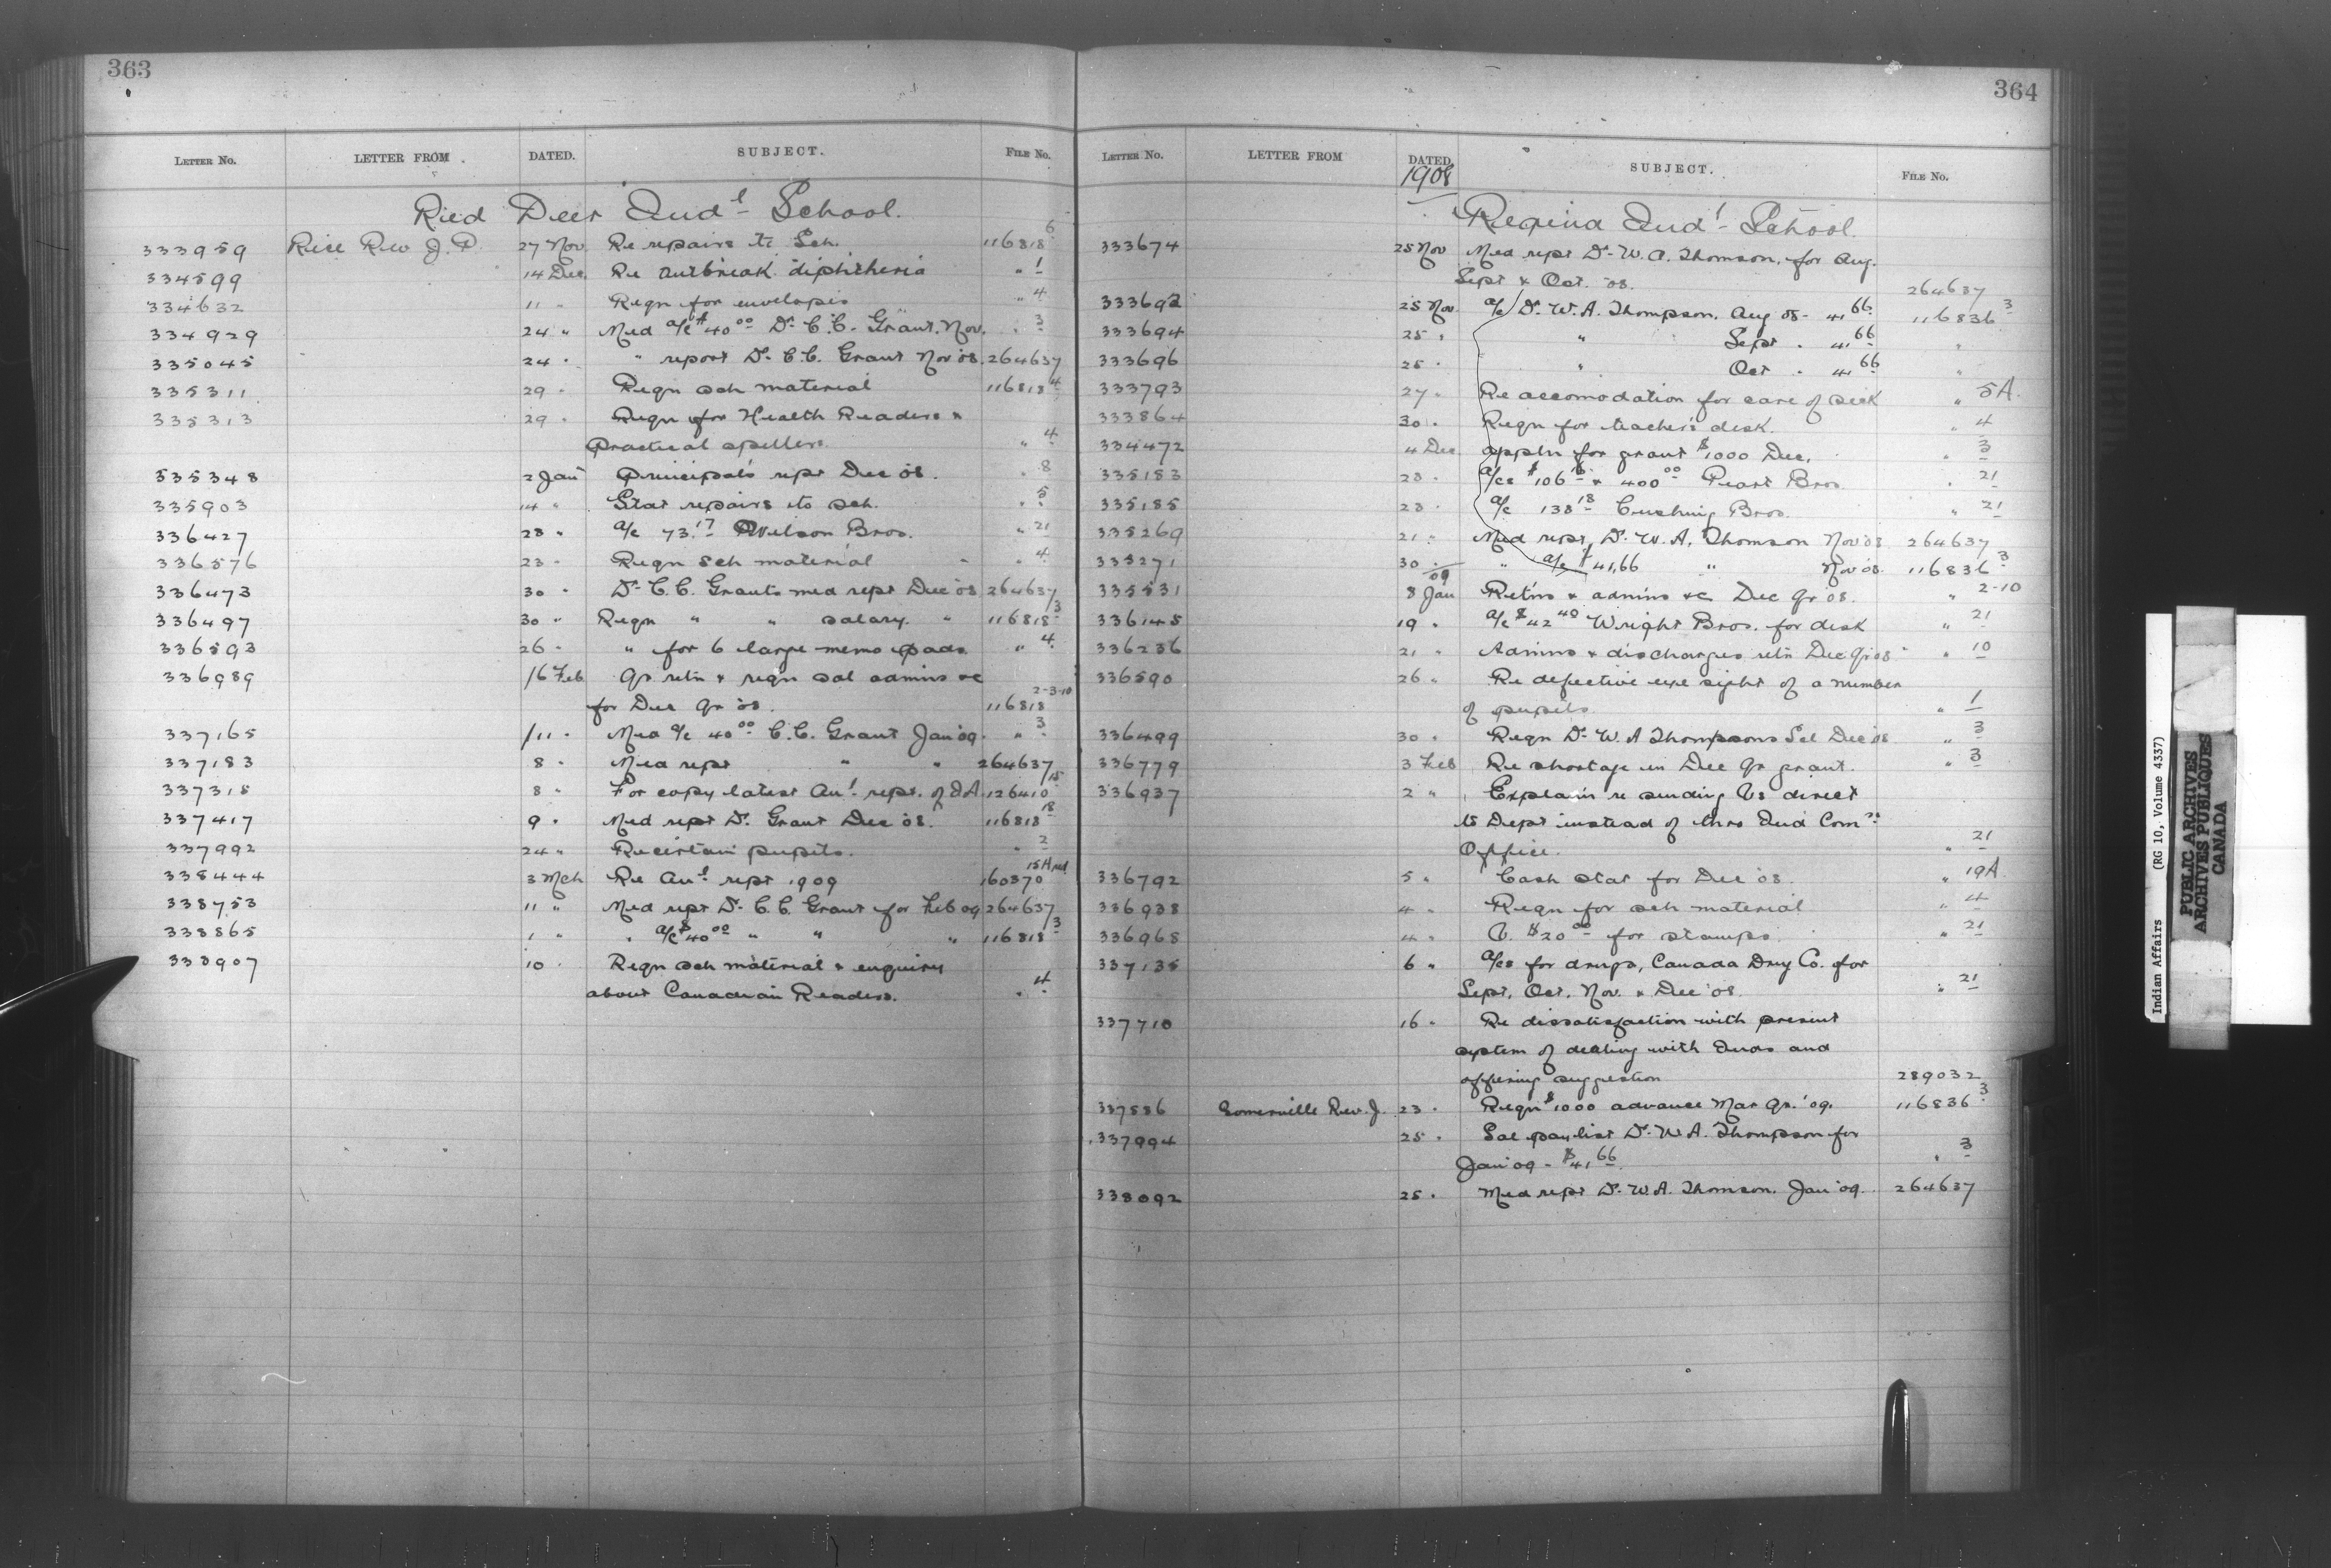 363
LETTER NO. LETTER FROM DATED. SUBJECT. FILE No.
Ried Deer Indl School.
333959 Rice Rev J. P. 27 Nov Re repairs to Sch. 116818 6
334599 14 Dec. Re outbreak diphtheria " 1
334632 11 " Reqn for envelopes " 4
334929 24 " Med a/c $40 00 Dr C.C. Grant. Nov. " 3
335045 24 " " report Dr C.C. Grant Nov '08. 264637
335311 29 " Reqn sch material 116818 4
335313 29 " Reqn for Health Readers &
Practical spellers. " 4
335348 2 Jan Principal's rept Dec '08. " 8
335903 14 " Stat repairs to sch. " 5
336427 28 " a/c 73.17 Wilson Bros. " 21
336576 23 " Reqn sch material " 4
336473 30 " Dr C.C. Grants med rept Dec '08 264637
336497 30 " Reqn " " salary. " 116818 3
336593 26 " " for 6 large memo pads " 4
336989 16 Feb Qr retn & reqn sal admins &c
for Dec Qr '08. 116818 2-3-10
337165 11 " Med a/c 40 00 C.C. Grant Jan '09. " 3
337183 8 " Med rept " " 264637
337318 8 " For copy latest Anl rept. of I.A. 126410 15
337417 9 " Med rept Dr. Grant Dec '08. 116818 18
337992 24 " Re certain pupils. " 2
338444 3 Mch Re Anl rept 1909 160370
338753 11 " Med rept Dr C.C. Grant for Feb 09 264637
338865 1 " " a/c $40 00 " " " 116818 3
338907 10 " Reqn sch material & enquiry
about Canadian Readers. " 4
364
LETTER NO. LETTER FROM DATED SUBJECT. FILE No.
1908
Regina Indl School.
333674 25 Nov Med rept Dr W. A. Thomson, for Aug.
Sept & Oct. '08. 264637
333692 25 Nov. a/c Dr. W. A. Thompson. Aug 08 - 41 66 116836 3
333694 25 " " Sept " 41 66 "
333696 25 " " Oct " 41 66 "
333793 27 " Re accomodation for care of sick " 5A.
333864 30 " Reqn for teacher's desk. " 4
334472 4 Dec appln for grant $1000 Dec. " 3
335183 23 " a/cs $106 & 400 00 Peart Bros. " 21
335185 23 " a/c 138 18 Cushing Bros. " 21
335269 21 " Med rept, Dr. W. A. Thomson Nov '08 264637
335271 30 " " a/c $41.66 " Nov '08. 116836 3
09
335531 8 Jan Retns & admins &c Dec Qr '08. " 2-10
336145 19 " a/c $42 40 Wright Bros. for desk " 21
336236 21 " Admins & discharges retn Dec Qr '08 " 10
336590 26 " Re defective eye sight of a number
of pupils. " 1
336499 30 " Reqn Dr W. A Thompsons Sal Dec '08 " 3
336779 3 Feb Re shortage in Dec Qr grant. " 3
336937 2 " Explain re sending Vs direct
to Dept instead of thro Ind Comrs
Office. " 21
336792 5 " Cash stat for Dec '08. " 19A.
336938 4 " Reqn for sch material " 4
336968 4 " V. $20 00 for stamps. " 21
337135 6 " a/cs for drugs, Canada Drug Co. for
Sept, Oct, Nov. & Dec '08. " 21
337710 16 " Re dissatisfaction with present
system of dealing with Inds and
offering suggestion 289032
337886 Somerville Rev. J. 23 " Reqn $1000 advance Mar Qr. '09. 116836 3
337994 25 " Sal paylist Dr. W. A. Thompson for
Jan '09 - $41 66. " 3
338092 25 " Med rept Dr. W. A. Thomson. Jan '09. 264637
Indian Affairs (RG 10, Volume 4337)
PUBLIC ARCHIVES
ARCHIVES PUBLIQUES
CANADA